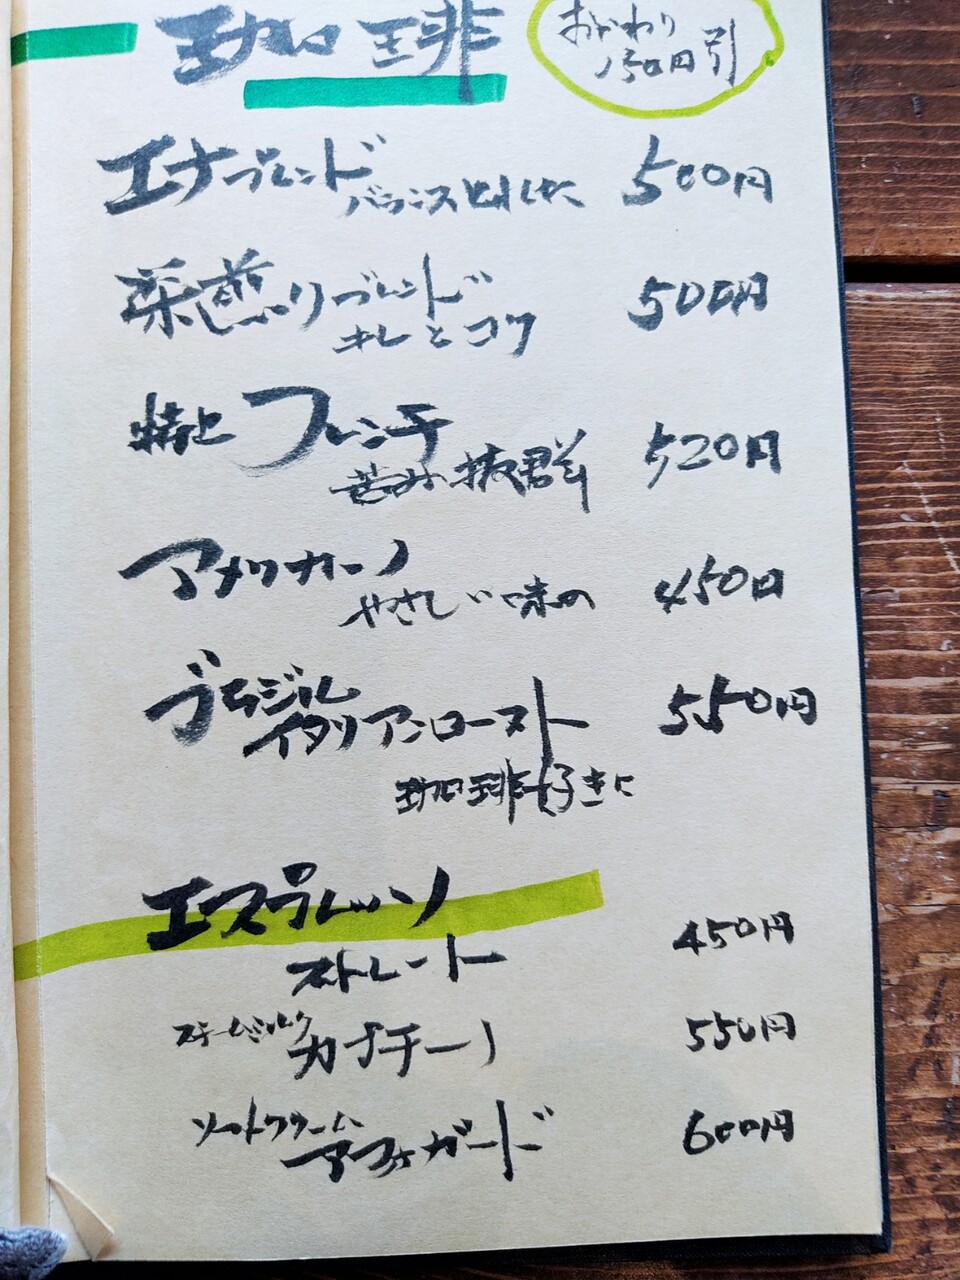 珈琲
おかわり
150円引
エナブレンド 500円
バランスとれした
深煎りブレンド 500円
キレとコク
特上 フレンチ 520円
苦み抜群
アメリカーノ 450円
やさしい味の
ブラジル
イタリアンロースト 550円
珈琲好きに
エスプレッソ
ストレート 450円
スチームミルク カプチーノ 550円
ソフトクリーム アフォガード 600円